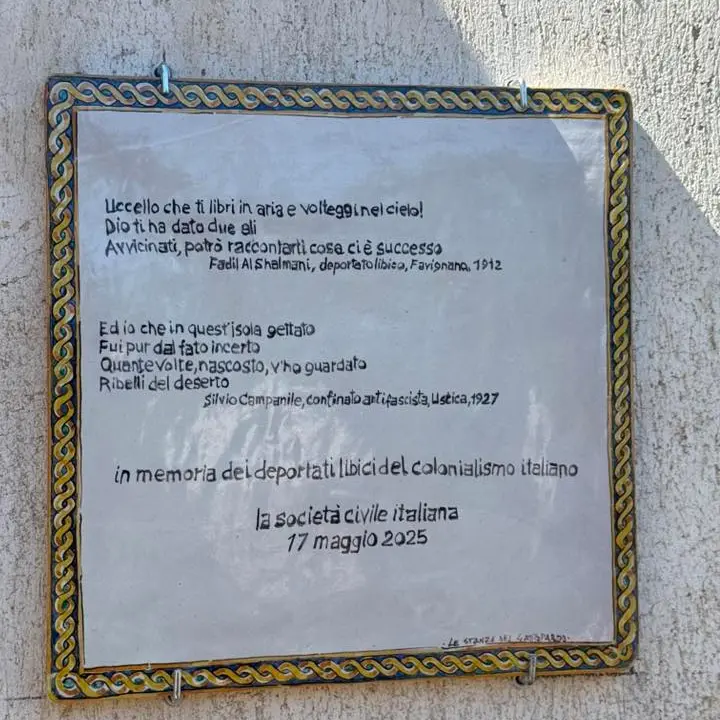 Uccello che ti libri in aria e volteggi nel cielo!
Dio ti ha dato due ali
Avvicinati, potrò raccontarti cosa ci è successo
Fadil Al Shalmani, deportato libico, Favignana, 1912
Ed io che in quest'isola gettato
Fui pur dal fato incerto
Quante volte, nascosto, v'ho guardato
Ribelli del deserto
Silvio Campanile, confinato antifascista, Ustica, 1927
in memoria dei deportati libici del colonialismo italiano
la società civile italiana
17 maggio 2025
LE STANZE DEL GATTOPARDO